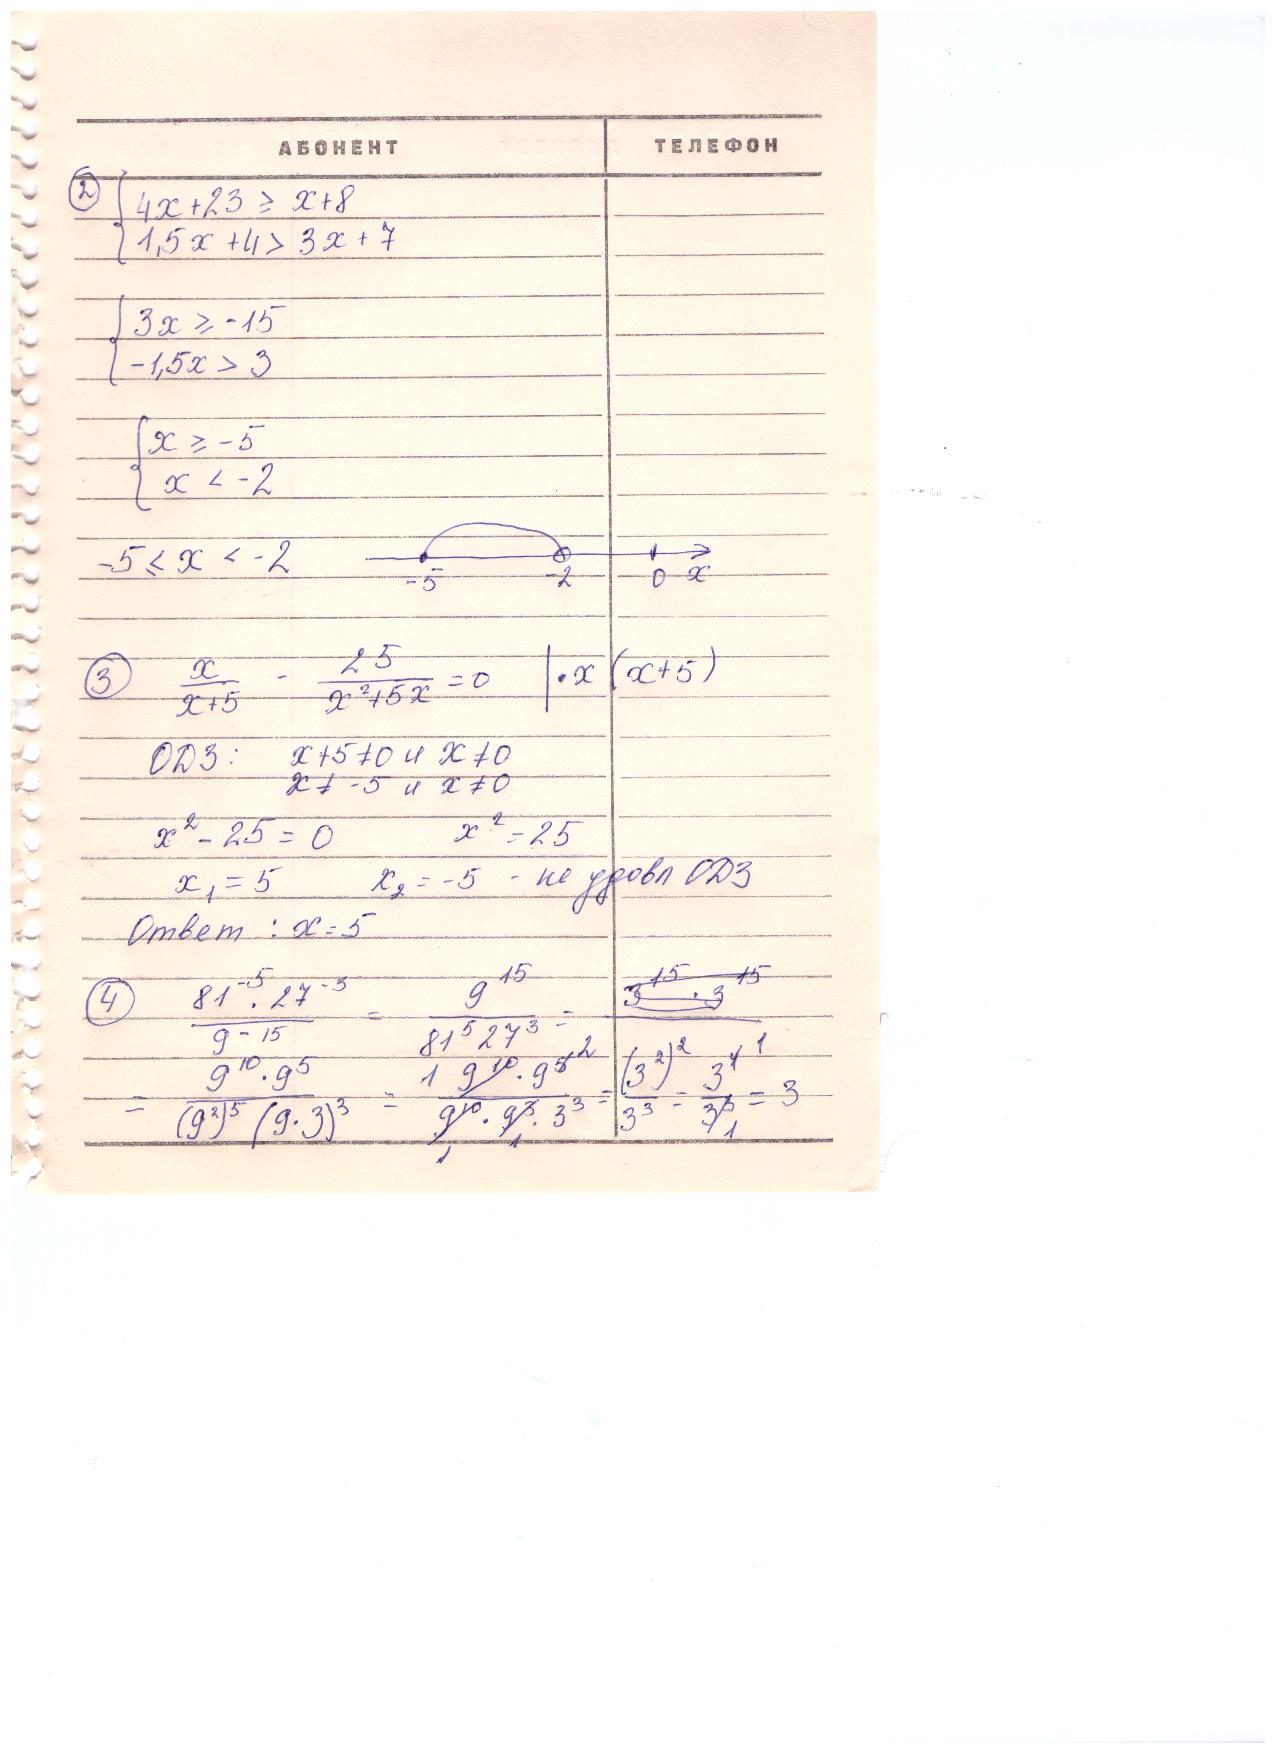 АБОНЕНТ ТЕЛЕФОН
② { 4x+23 ≥ x+8
1,5x+4 > 3x+7
{ 3x ≥ -15
-1,5x > 3
{ x ≥ -5
x < -2
-5 ≤ x < -2 -5 -2 0 x
③ x/(x+5) - 25/(x²+5x) = 0 | · x (x+5)
ОДЗ: x+5≠0 и x≠0
x ≠ -5 и x≠0
x² - 25 = 0 x² = 25
x₁ = 5 x₂ = -5 - не удовл ОДЗ
Ответ : x=5
④ (81⁻⁵ · 27⁻³)/(9⁻¹⁵) = 9¹⁵/(81⁵ 27³) = 3¹⁵ · 3¹⁵
= (9¹⁰ · 9⁵)/((9²)⁵ (9·3)³) = (9¹⁰ · 9⁵)/(9¹⁰ · 9³ · 3³) = (3²)²/3³ = 3⁴/3³ = 3